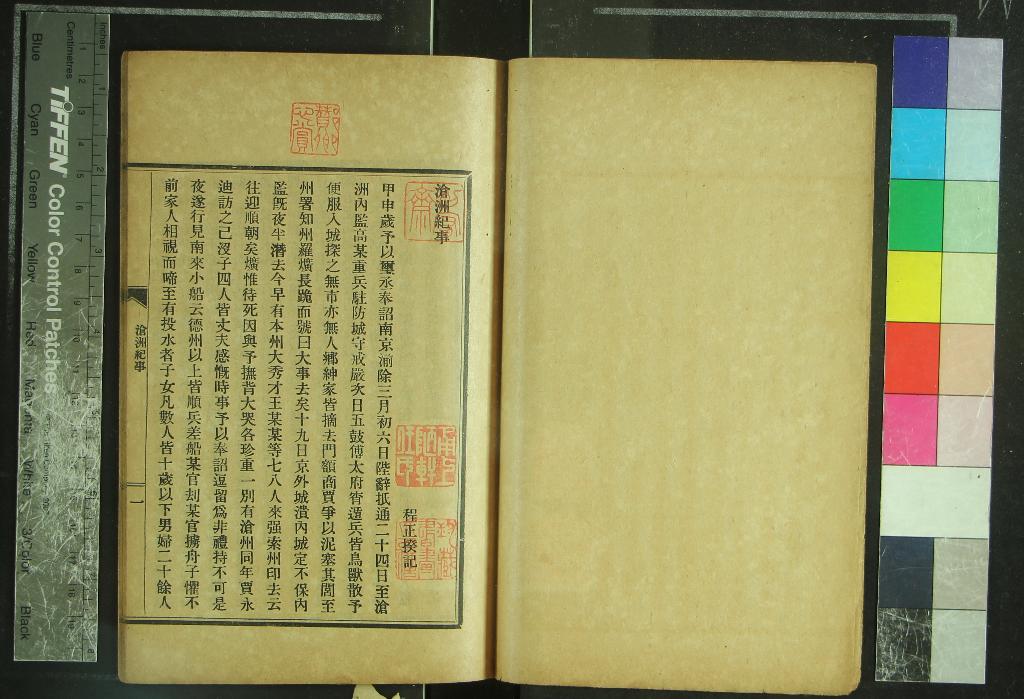 滄洲紀事
程正揆記
甲申歲予以璽丞奉詔南京湔除三月初六日陛辭抵通二十四日至滄
洲內監高某重兵駐防城守戒嚴次日五鼓傅太府宵遁兵皆鳥獸散予
便服入城探之無市亦無人鄉紳家皆摘去門額商賈爭以泥塞其閭至
州署知州羅爌長跪而號曰大事去矣十九日京外城潰內城定不保內
監旣夜半潛去今早有本州大秀才王某某等七八人來强索州印去云
往迎順朝矣爌惟待死因與予撫背大哭各珍重一別有滄州同年賈永
迪訪之已沒子四人皆丈夫感慨時事予以奉詔逗留爲非禮持不可是
夜遂行見南來小船云德州以上皆順兵差船某官刦某官擄舟子懼不
前家人相視而啼至有投水者子女凡數人皆十歲以下男婦二十餘人
滄洲紀事
一
TIFFEN Color Control Patches
Centimetres
Inches
Blue
Cyan
Green
Yellow
Red
Magenta
White
3/Color
Black